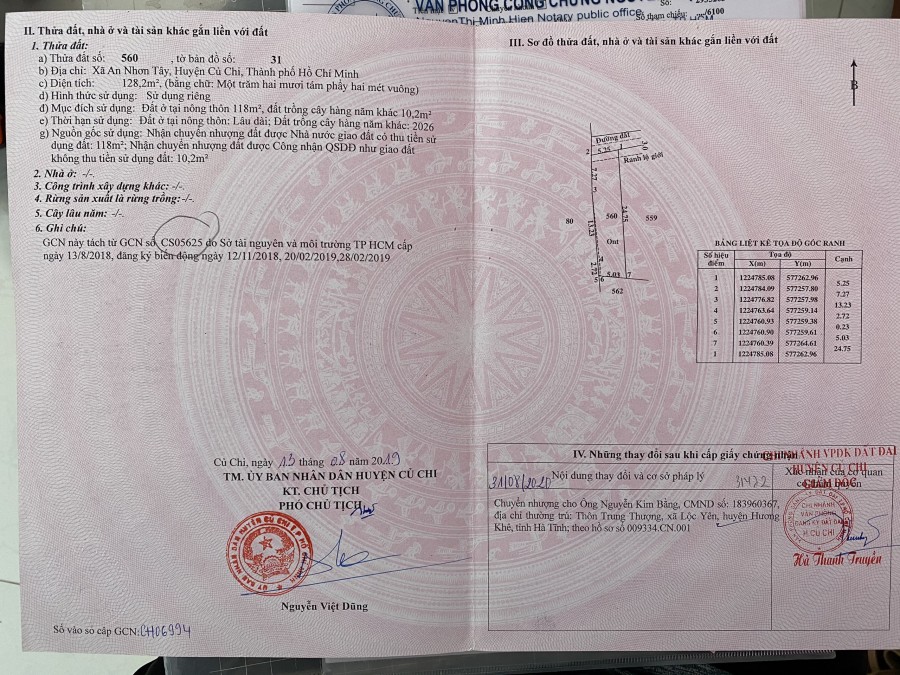 VĂN PHÒNG CÔNG CHỨNG NGUY
Nguyen Thi Minh Hien Notary public office
Số tham chiếu: /6100
II. Thửa đất, nhà ở và tài sản khác gắn liền với đất
1. Thửa đất:
a) Thửa đất số: 560 , tờ bản đồ số: 31
b) Địa chỉ: Xã An Nhơn Tây, Huyện Củ Chi, Thành phố Hồ Chí Minh
c) Diện tích: 128,2m², (bằng chữ: Một trăm hai mươi tám phẩy hai mét vuông)
d) Hình thức sử dụng: Sử dụng riêng
đ) Mục đích sử dụng: Đất ở tại nông thôn 118m², đất trồng cây hàng năm khác 10,2m²
e) Thời hạn sử dụng: Đất ở tại nông thôn: Lâu dài; Đất trồng cây hàng năm khác: 2026
g) Nguồn gốc sử dụng: Nhận chuyển nhượng đất được Nhà nước giao đất có thu tiền sử
dụng đất: 118m²; Nhận chuyển nhượng đất được Công nhận QSDĐ như giao đất
không thu tiền sử dụng đất: 10,2m²
2. Nhà ở: -/-.
3. Công trình xây dựng khác: -/-.
4. Rừng sản xuất là rừng trồng: -/-.
5. Cây lâu năm: -/-.
6. Ghi chú:
GCN này tách từ GCN số CS05625 do Sở tài nguyên và môi trường TP HCM cấp
ngày 13/8/2018, đăng ký biến động ngày 12/11/2018, 20/02/2019,28/02/2019
Củ Chi, ngày 13 tháng 08 năm 2019
TM. ỦY BAN NHÂN DÂN HUYỆN CỦ CHI
KT. CHỦ TỊCH
PHÓ CHỦ TỊCH
Nguyễn Việt Dũng
Số vào sổ cấp GCN: CH06994
III. Sơ đồ thửa đất, nhà ở và tài sản khác gắn liền với đất
B
Đường đất
2 5.25 1 3.0
Ranh lộ giới
7.27
3
80 13.23 560 24.75 559
Ont
4
2.72
5 6 5.03 7
562
BẢNG LIỆT KÊ TỌA ĐỘ GÓC RANH
Số hiệu điểm Tọa độ Cạnh
X(m) Y(m)
1 1224785.08 577262.96
5.25
2 1224784.09 577257.80
7.27
3 1224776.82 577257.98
13.23
4 1224763.64 577259.14
2.72
5 1224760.93 577259.38
0.23
6 1224760.90 577259.61
5.03
7 1224760.39 577264.61
24.75
1 1224785.08 577262.96
IV. Những thay đổi sau khi cấp giấy chứng nhận
31/08/2020 Nội dung thay đổi và cơ sở pháp lý
Xác nhận của cơ quan
có thẩm quyền
CHI NHÁNH VPĐK ĐẤT ĐAI
HUYỆN CỦ CHI
GIÁM ĐỐC
Chuyển nhượng cho Ông Nguyễn Kim Bảng, CMND số: 183960367,
địa chỉ thường trú: Thôn Trung Thượng, xã Lộc Yên, huyện Hương
Khê, tỉnh Hà Tĩnh; theo hồ sơ số 009334.CN.001
CHI NHÁNH
VĂN PHÒNG
ĐĂNG KÝ ĐẤT ĐAI
H. CỦ CHI
Hà Thanh Truyền